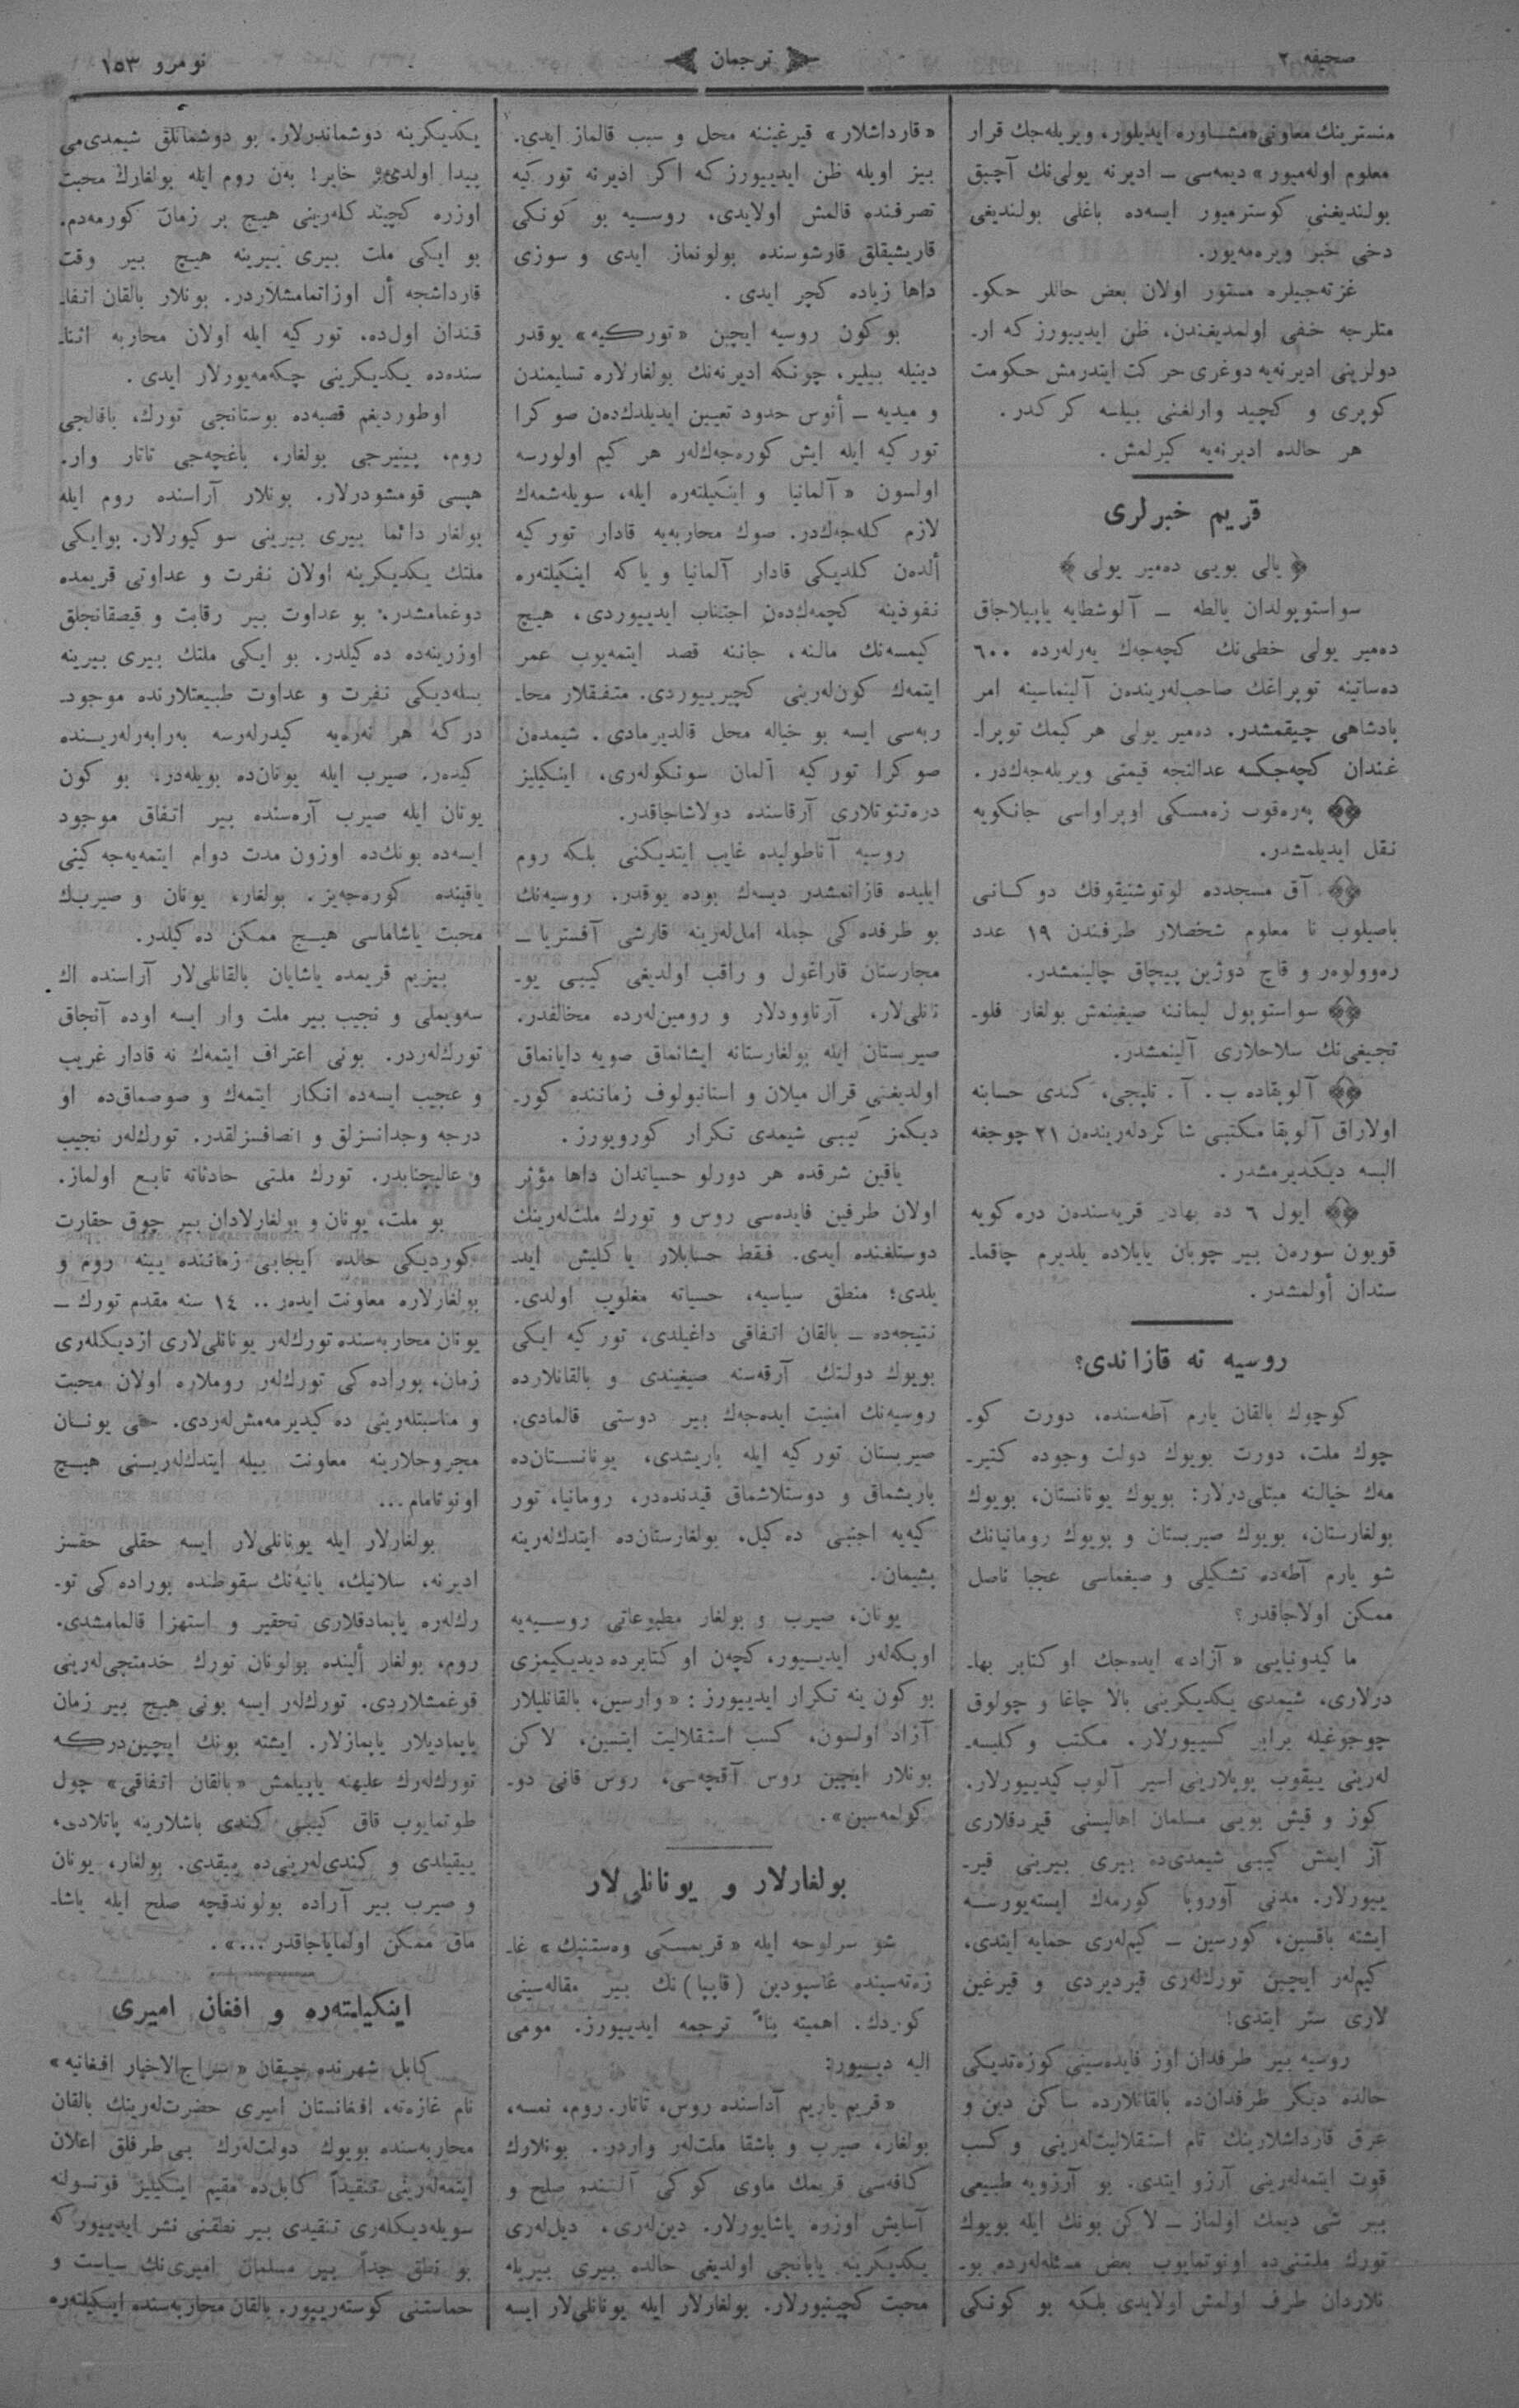 صحیفه ٢
ترجمان
نومرو ١٥٣
منسترینك معاونی «مشاوره ایدیلور، ویریله‌جك قرار
معلوم اوله‌میور» دیمه‌سی ـ ادیرنه یولی‌نك آچیق
بولندیغنی كوسترمیور ایسه‌ده باغلی بولندیغی
دخی خبر ویره‌مه‌یور.
غزته‌جیلره مستور اولان بعض حاللر حكو‍ـ
متلرجه خفی اولمدیغندن، ظن ایدییورز كه ار‍ـ
دولرینی ادیرنه‌یه دوغری حركت ایتدرمش حكومت
كوپری و كچید وارلغنی بیلسه كركدر.
هر حالده ادیرنه‌یه كیرلمش.
قریم خبرلری
﴿ یالی بویی ده‌میر یولی ﴾
سواستوپولدان یالطه ـ آلوشطایه یاپیلاجاق
ده‌میر یولی خطی‌نك كچه‌جه‌ك یه‌رله‌رده ٦٠٠
ده‌ساتینه توپراغك صاحب‌له‌ریندەن آلینماسینه امر
پادشاهی چیقمشدر. ده‌میر یولی هر كیمك توپرا‍ـ
غندان كچه‌جكسه عدالتجه قیمتی ویریله‌جه‌ك‌در.
په‌ره‌قوب زه‌مسكی اوپراواسی جانكویه
نقل ایدیلمشدر.
آق مسجدده لوتوشنیقوفك دوكانی
باصیلوب نا معلوم شخصلار طرفندن ١٩ عدد
ره‌وولوه‌ر و قاچ دوژین پیچاق چالینمشدر.
سواستوپول لیماننه صیغینمش بولغار فلو‍ـ
تجیغی‌نك سلاحلاری آلینمشدر.
آلوپقاده ب. آ. تلپجی، كندی حسابنه
اولاراق آلوپقا مكتبی شاكردله‌ریندەن ٢١ چوجغه
البسه دیكدیرمشدر.
ایول ٦ ده بهادر قریه‌سندەن دره‌كویه
قویون سوره‌ن بیر چوبان یایلاده یلدیرم چاقما‍ـ
سندان أولمشدر.
روسیه نه قازاندی؟
كوچوك بالقان یارم آطه‌سنده، دورت كو‍ـ
چوك ملت، دورت بویوك دولت وجوده كتیر‍ـ
مه‌ك خیالنه مبتلی‌درلار: بویوك یونانستان، بویوك
بولغارستان، بویوك صیربستان و بویوك رومانیانك
شو یارم آطه‌ده تشكیلی و صیغماسی عجبا ناصل
ممكن اولاجاقدر؟
ماكیدونیایی «آزاد» ایده‌جك اوكتابر بها‍ـ
درلاری، شیمدی یكدیكرینی بالا چاغا و چولوق
چوجوغیله برابر كسییورلار. مكتب و كلیسه‍ـ
له‌رینی ییقوب بویلارینی اسیر آلوب كیدییورلار.
كوز و قیش بویی مسلمان اهالیسنی قیردقلاری
آز ایمش كیبی شیمدی‌ده بیری بیرینی قیر‍ـ
ییورلار. مدنی آوروپا كورمه‌ك ایسته‌یورسه
ایشته باقسین، كورسین ـ كیم‌له‌ری حمایه ایتدی،
كیم‌لەر ایچین تورك‌لەری قیردیردی و قیرغین
لاری ستر ایتدی!
روسیه بیر طرفدان اوز فایده‌سینی كوزه‌تدیكی
حالده دیكر طرفدان‌ده بالقانلارده ساكن دین و
عرق قارداشلارینك تام استقلالیت‌له‌رینی و كسب
قوت ایتمه‌له‌رینی آرزو ایتدی. بو آرزویه طبیعی
بیر شی دیمك اولماز ـ لاكن بونك ایله بویوك
تورك ملتنی‌ده اونوتمایوب بعض مسئله‌لەرده بو‍ـ
نلاردان طرف اولمش اولایدی بلكه بو كونكی
«قارداشلار» قیرغیننه محل و سبب قالماز ایدی.
بیز اویله ظن ایدییورز كه اكر ادیرنه توركیه
تصرفنده قالمش اولایدی، روسیه بو كونكی
قاریشیقلق قارشوسنده بولونماز ایدی و سوزی
داها زیاده كچر ایدی.
بو كون روسیه ایچین «توركیه» یوقدر
دینیله بیلیر، چونكه ادیرنه‌نك بولغارلاره تسلیمندن
و میدیه ـ أنوس حدود تعیین ایدیلدك‌دەن صوكرا
توركیه ایله ایش كوره‌جه‌ك‌لەر هر كیم اولورسه
اولسون «آلمانیا و اینكیلته‌ره ایله، سویله‌شمه‌ك
لازم كله‌جه‌ك‌در. صوك محاربه‌یه قادار توركیه
ألدەن كلدیكی قادار آلمانیا و یاكه اینكیلته‌ره
نفوذینه كچمه‌ك‌دەن اجتناب ایدییوردی، هیچ
كیمسه‌نك مالنه، جاننه قصد ایتمه‌یوب عمر
ایتمه‌ك كون‌له‌رینی كچیرییوردی. متفقلار محا‍ـ
ربه‌سی ایسه بو خیاله محل قالدیرمادی. شیمدەن
صوكرا توركیه آلمان سونكولەری، اینكیلیز
دره‌تنوتلاری آرقاسنده دولاشاجاقدر.
روسیه آناطولیده غایب ایتدیكنی بلكه روم
ایلیده قازانمشدر دیسه‌ك بوده یوقدر. روسیه‌نك
بو طرفده‌كی جمله امل‌له‌رینه قارشی آفستریا ـ
مجارستان قاراغول و راقب اولدیغی كیبی یو‍ـ
نانلی‌لار، آرناوودلار و رومین‌لەرده مخالفدر.
صیربستان ایله بولغارستانه ایشانماق صویه دایانماق
اولدیغنی قرال میلان و استانبولوف زماننده كور‍ـ
دیكمز كیبی شیمدی تكرار كورویورز.
یاقین شرقده هر دورلو حسیاتدان داها مؤثر
اولان طرفین فایده‌سی روس و تورك ملت‌له‌رینك
دوستلغنده ایدی. فقط حسابلار یاكلیش اید‍ـ
یلدی؛ منطق سیاسیه، حسیاته مغلوب اولدی.
نتیجه‌ده ـ بالقان اتفاقی داغیلدی، توركیه ایكی
بویوك دولتك آرقه‌سنه صیغیندی و بالقانلارده
روسیه‌نك امنیت ایده‌جه‌ك بیر دوستی قالمادی.
صیربستان توركیه ایله باریشدی، یونانستان‌ده
باریشماق و دوستلاشماق قیدنده‌در، رومانیا، تور
كیه‌یه اجنبی ده‌كیل. بولغارستان‌ده ایتدك‌له‌رینه
پشیمان.
یونان، صیرب و بولغار مطبوعاتی روسیه‌یه
اوبكه‌لەر ایدییور، كچەن اوكتابرده دیدیكیمزی
بو كون ینه تكرار ایدییورز: «وارسین، بالقانلیلار
آزاد اولسون، كسب استقلالیت ایتسین، لاكن
بونلار ایچین روس آقچه‌سی، روس قانی دو‍ـ
كولمه‌سین».
بولغارلار و یونانلی‌لار
شو سرلوحه ایله «قریمسكی وه‌ستنیك» غا‍ـ
زه‌ته‌سینده غاسپودین (قاپپا)نك بیر مقاله‌سینی
كوردك. اهمیته بناً ترجمه ایدییورز. مومی
الیه دییور:
«قریم یاریم آداسنده روس، تاتار. روم، نمسه،
بولغار، صیرب و باشقا ملت‌لەر واردر. بونلارك
كافه‌سی قریمك ماوی كوكی آلتنده صلح و
آسایش اوزره یاشایورلار. دین‌لەری، دیل‌لەری
یكدیكرینه یابانجی اولدیغی حالده بیری بیریله
محبت كچینیورلار. بولغارلار ایله یونانلی‌لار ایسه
یكدیكرینه دوشماندرلار. بو دوشمانلق شیمدی‌می
پیدا اولدی؟ خایر! بەن روم ایله بولغارك محبت
اوزره كچیندكله‌رینی هیچ بر زمان كورمەدم.
بو ایكی ملت بیری بیرینه هیچ بیر وقت
قارداشجه أل اوزاتمامشلاردر. بونلار بالقان اتفا‍ـ
قندان اول‌ده، توركیه ایله اولان محاربه اثنا‍ـ
سنده‌ده یكدیكرینی چكه‌مه‌یورلار ایدی.
اوطوردیغم قصبه‌ده بوستانجی تورك، باقالجی
روم، پینیرجی بولغار، باغچه‌جی تاتار وار.
هپسی قومشودرلار. بونلار آراسنده روم ایله
بولغار دائما بیری بیرینی سوكیورلار. بوایكی
ملتك یكدیكرینه اولان نفرت و عداوتی قریمده
دوغمامشدر، بو عداوت بیر رقابت و قیصقانجلق
اوزرینه‌ده ده‌كیلدر. بو ایكی ملتك بیری بیرینه
بسله‌دیكی نفرت و عداوت طبیعتلارنده موجود‍ـ
دركه هر نه‌ره‌یه كیدرلەرسه به‌رابه‌رلەرینده
كیدەر. صیرب ایله یونان‌ده بویله‌در. بو كون
یونان ایله صیرب آره‌سنده بیر اتفاق موجود
ایسه‌ده بونك‌ده اوزون مدت دوام ایتمه‌یه‌جه‌كینی
یاقینده كوره‌جه‌یز. بولغار، یونان و صیربك
محبت یاشاماسی هیچ ممكن ده‌كیلدر.
بیزیم قریمده یاشایان بالقانلی‌لار آراسنده اك
سه‌ویملی و نجیب بیر ملت وار ایسه اوده آنجاق
تورك‌لەردر. بونی اعتراف ایتمه‌ك نه قادار غریب
و عجیب ایسه‌ده انكار ایتمه‌ك و صوصماق‌ده او
درجه وجدانسزلق و انصافسزلقدر. تورك‌لەر نجیب
و عالیجنابدر. تورك ملتی حادثاته تابع اولماز.
بو ملت، یونان و بولغارلادان بیر چوق حقارت
كوردیكی حالده ایجابی زماننده یینه روم و
بولغارلاره معاونت ایدەر.. ١٤ سنه مقدم تورك ـ
یونان محاربه‌سنده تورك‌لەر یونانلی‌لاری ازدیكلەری
زمان، بوراده‌كی تورك‌لەر روملاره اولان محبت
و مناسبتله‌رینی ده‌كیدیرمه‌مش‌لەردی. حتی یونان
مجروحلارینه معاونت بیله ایتدك‌له‌رینی هیچ
اونوتامام...
بولغارلار ایله یونانلی‌لار ایسه حقلی حقسز
ادیرنه، سلانیك، یانیه‌نك سقوطنده بوراده‌كی تو‍ـ
رك‌لەره یاپمادقلاری تحقیر و استهزا قالمامشدی.
روم، بولغار ألینده بولونان تورك خدمتجی‌له‌رینی
قوغمشلاردی. تورك‌لەر ایسه بونی هیچ بیر زمان
یاپمادیلار یاپمازلار. ایشته بونك ایچین‌دركه
تورك‌لەرك علیهنه یاپیلمش «بالقان اتفاقی» چول
طوتمایوب قاق كیبی كندی باشلارینه پاتلادی،
ییقیلدی و كندی‌له‌رینی‌ده ییقدی. بولغار، یونان
و صیرب بیر آراده بولوندقچه صلح ایله یاشا‍ـ
ماق ممكن اولمایاجاقدر...».
اینكیلته‌ره و افغان امیری
كابل شهرنده چیقان «سراج‌الاخبار افغانیه»
نام غازه‌ته، افغانستان امیری حضرت‌له‌رینك بالقان
محاربه‌سنده بویوك دولت‌لەرك بی‌طرفلق اعلان
ایتمه‌له‌رینی تنقیداً كابل‌ده مقیم اینكیلیز قونسولنه
سویله‌دیكلەری تنقیدی بیر نطقنی نشر ایدییور كه
بو نطق جداً بیر مسلمان امیری‌نك سیاست و
حماستنی كوسته‌رییور. بالقان محاربه‌سنده اینكیلته‌ره